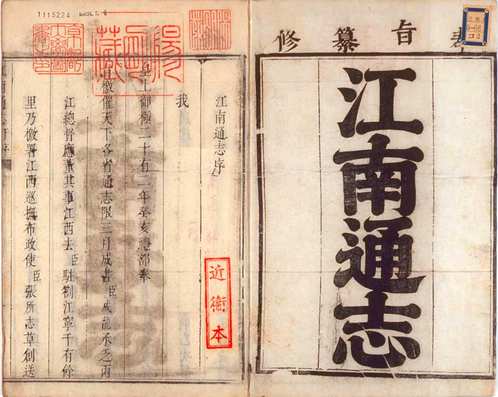 奉旨纂修
江南通志
江南通志序
我
皇上御極二十有二年癸亥禮部奉
旨檄催天下各省通志限三月成書臣成龍承乏兩
江總督應董其事江西去臣駐劄江寧千有餘
里乃檄署江西巡撫布政使臣張所志草創送
近衛本
1115224